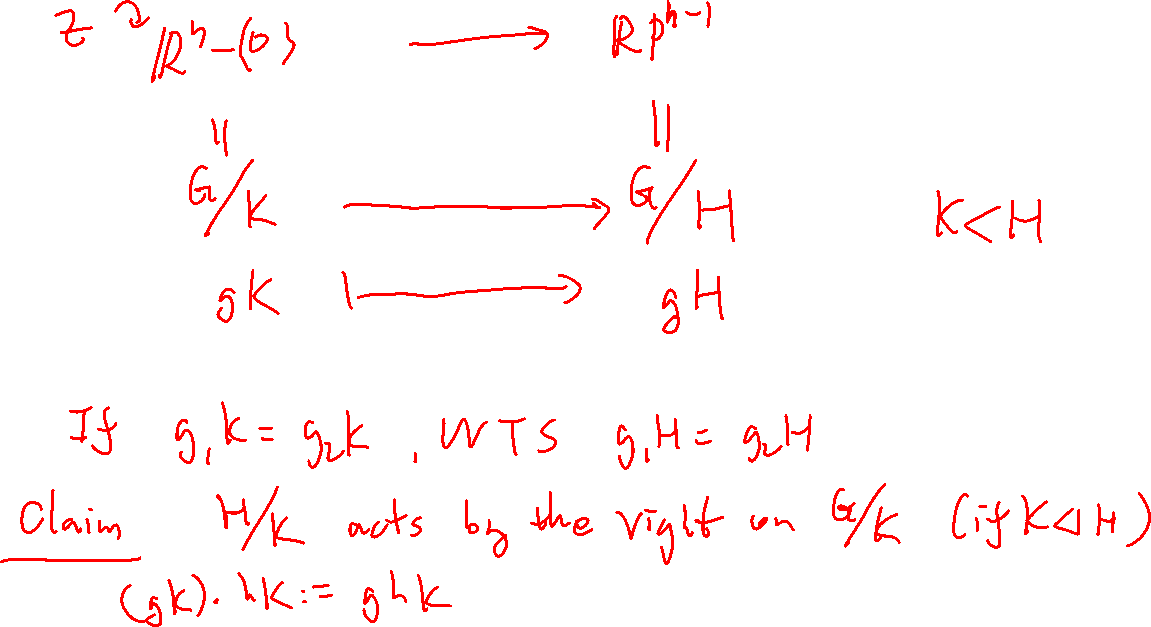 Z ↷ ℝⁿ-{0} ⟶ ℝPⁿ⁻¹
|| ||
G/K ⟶ G/H K<H
gK ⟼ gH
If g₁K = g₂K, WTS g₁H = g₂H
Claim H/K acts by the right on G/K (if K◁H)
(gK)·hK := ghK